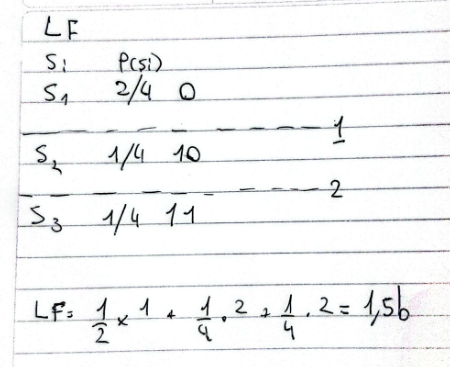 LF
Si P(si)
S1 2/4 0
1
S2 1/4 10
2
S3 1/4 11
LF = 1/2 x 1 + 1/4 . 2 + 1/4 . 2 = 1,5b